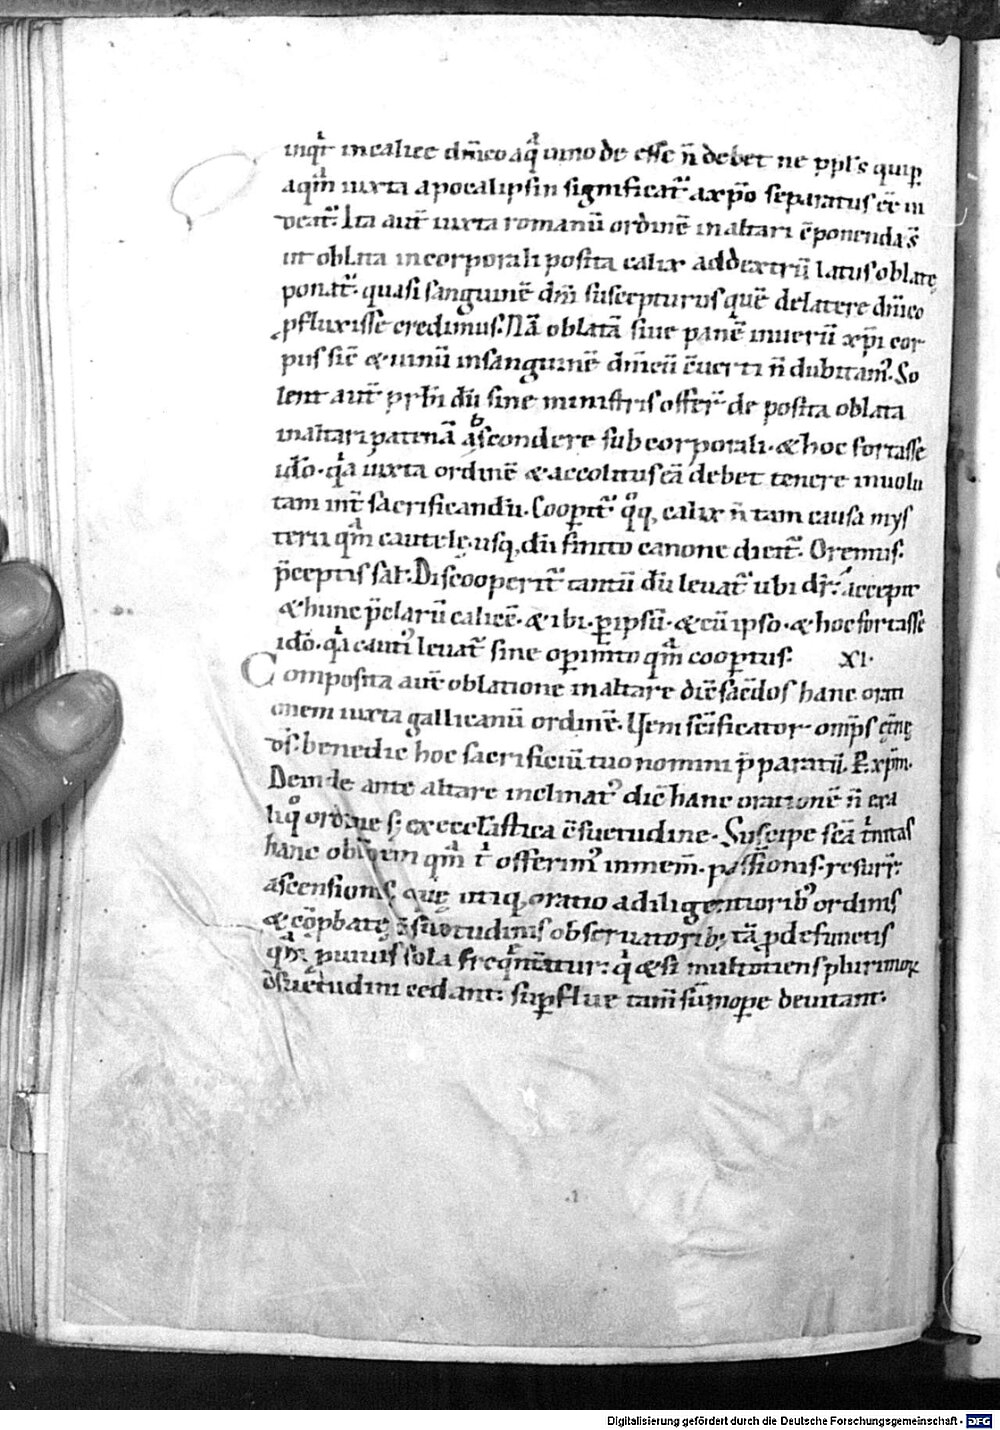 inqͥt in calice dn̄ico aqͣ uino de esse n̄ debet ne ppl's quip̱
aqͣm iuxta apocalipsin significatᷣ a xp̄o separatus eē ui
deatᷣ. Ita aut̄ iuxta romanū ordinē in altari cōponenda s̄
ut oblata in corporali posita calix ad dextrū latus oblatę
ponatᷣ. quasi sanguinē dn̄i suscepturus quē de latere dn̄ico
ꝓfluxisse credimus. Nā oblatā siue panē in uerū xp̄i cor
pus sic̄ & uinū in sanguinē dn̄icū c̄uerti n̄ dubitam᷒. So
lent aut̄ prb̄i dū sine ministris offerr̄ de posita oblata
in altari patenā abscondere sub corporali. & hoc fortasse
idō. qͣa iuxta ordinē & accolitus eā debet tenere inuolu
tam int̄ sacrificandū. Cooꝑitᷣ qͦq, calix n̄ tam causa mys
terii qͣm cautelę. usq, dū finito canone dicitᷣ. Oremus.
p̄ceptis sal̄. Discooperitᷣ tantū dū leuatᷣ ubi drᷣ. Accepit
& hunc p̄clarū calicē. & ibi. ꝑ ipsū. & cū ipso. & hoc fortasse
idō. qͣa cauti᷒ leuatᷣ sine oꝑim̄to qͣm cooꝑtus. XI.
Composita aut̄ oblatione in altare dic̄ sac̄dos hanc orati
onem iuxta gallicanū ordinē. Ueni sc̄ificator omīps ęt̄nę
ds̄. benedic hoc sacrificiū tuo nomini p̄paratū. P. xp̄m.
Deinde ante altare inclinat᷒ dic̄ hanc orationē n̄ ex a
liqͦ ordine s; ex eccl'astica c̄suetudine. Suscipe sc̄a tͥnitas
hanc oblationem qͣm tͥ offerim᷒ in mem̄. passionis. resurr̄.
ascensionis. quę utiq, oratio a diligentiorib᷒ ordinis
& cōp̱batę c̄suetudinis obseruatorib; tā ꝓ defunctis
qͣm ꝓ uiuis sola freqͤntatur. qͥ & si multotiens plurimoꝝ
c̄suetudini cedant. suꝑflue tam̄ sūmoꝑe deuitant.
Digitalisierung gefördert durch die Deutsche Forschungsgemeinschaft - DFG